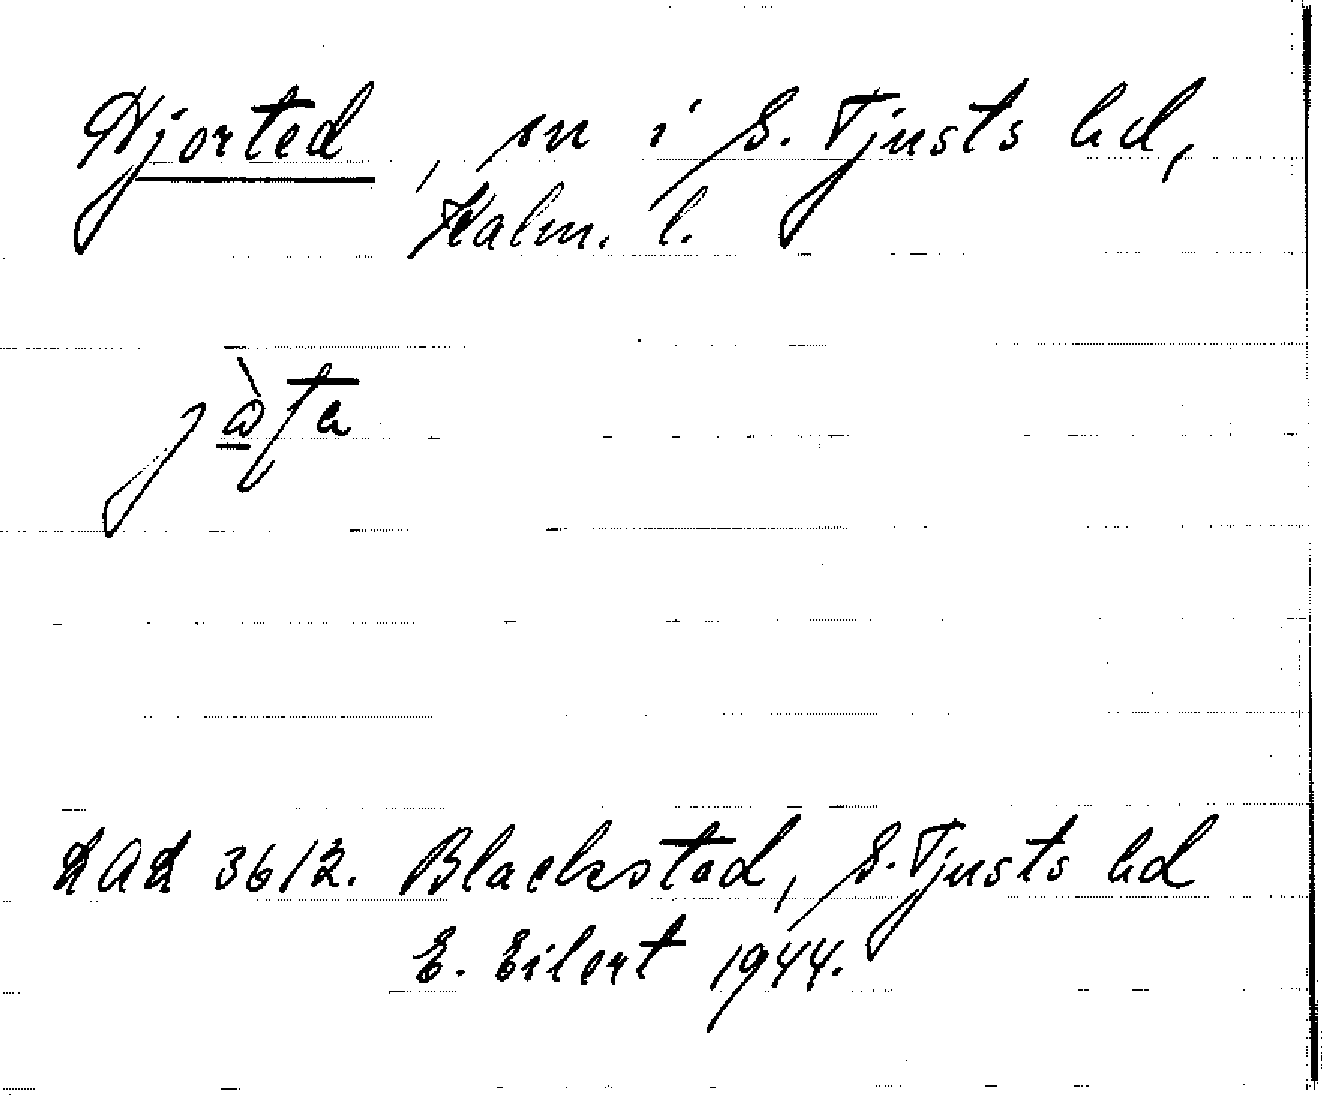 Hjorted, sn i S. Tjusts hd,
Kalm. l.
DAL 3612. Blackstad, S. Tjusts hd
E. Eilert 1944.